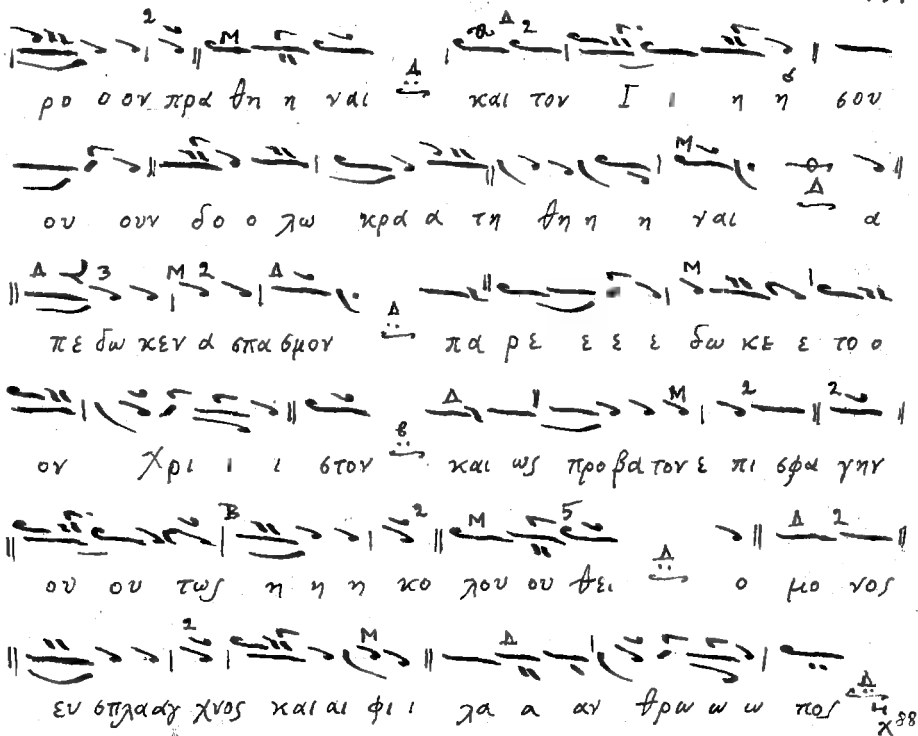 ρο ο ον πρα θη η ναι και τον Ι ι η η σου
ου ουν δο ο λω κρα α τη θη η η ναι α
πε δω κεν α σπα σμον πα ρε ε ε ε δω κε ε το ο
ον Χρι ι ι στον και ως προ βα τον ε πι σφα γην
ου ου τως η η η κο λου ου θει ο μο νος
ευ σπλααγ χνος και αι φι ι λα α αν θρω ω ω πος
χ 88